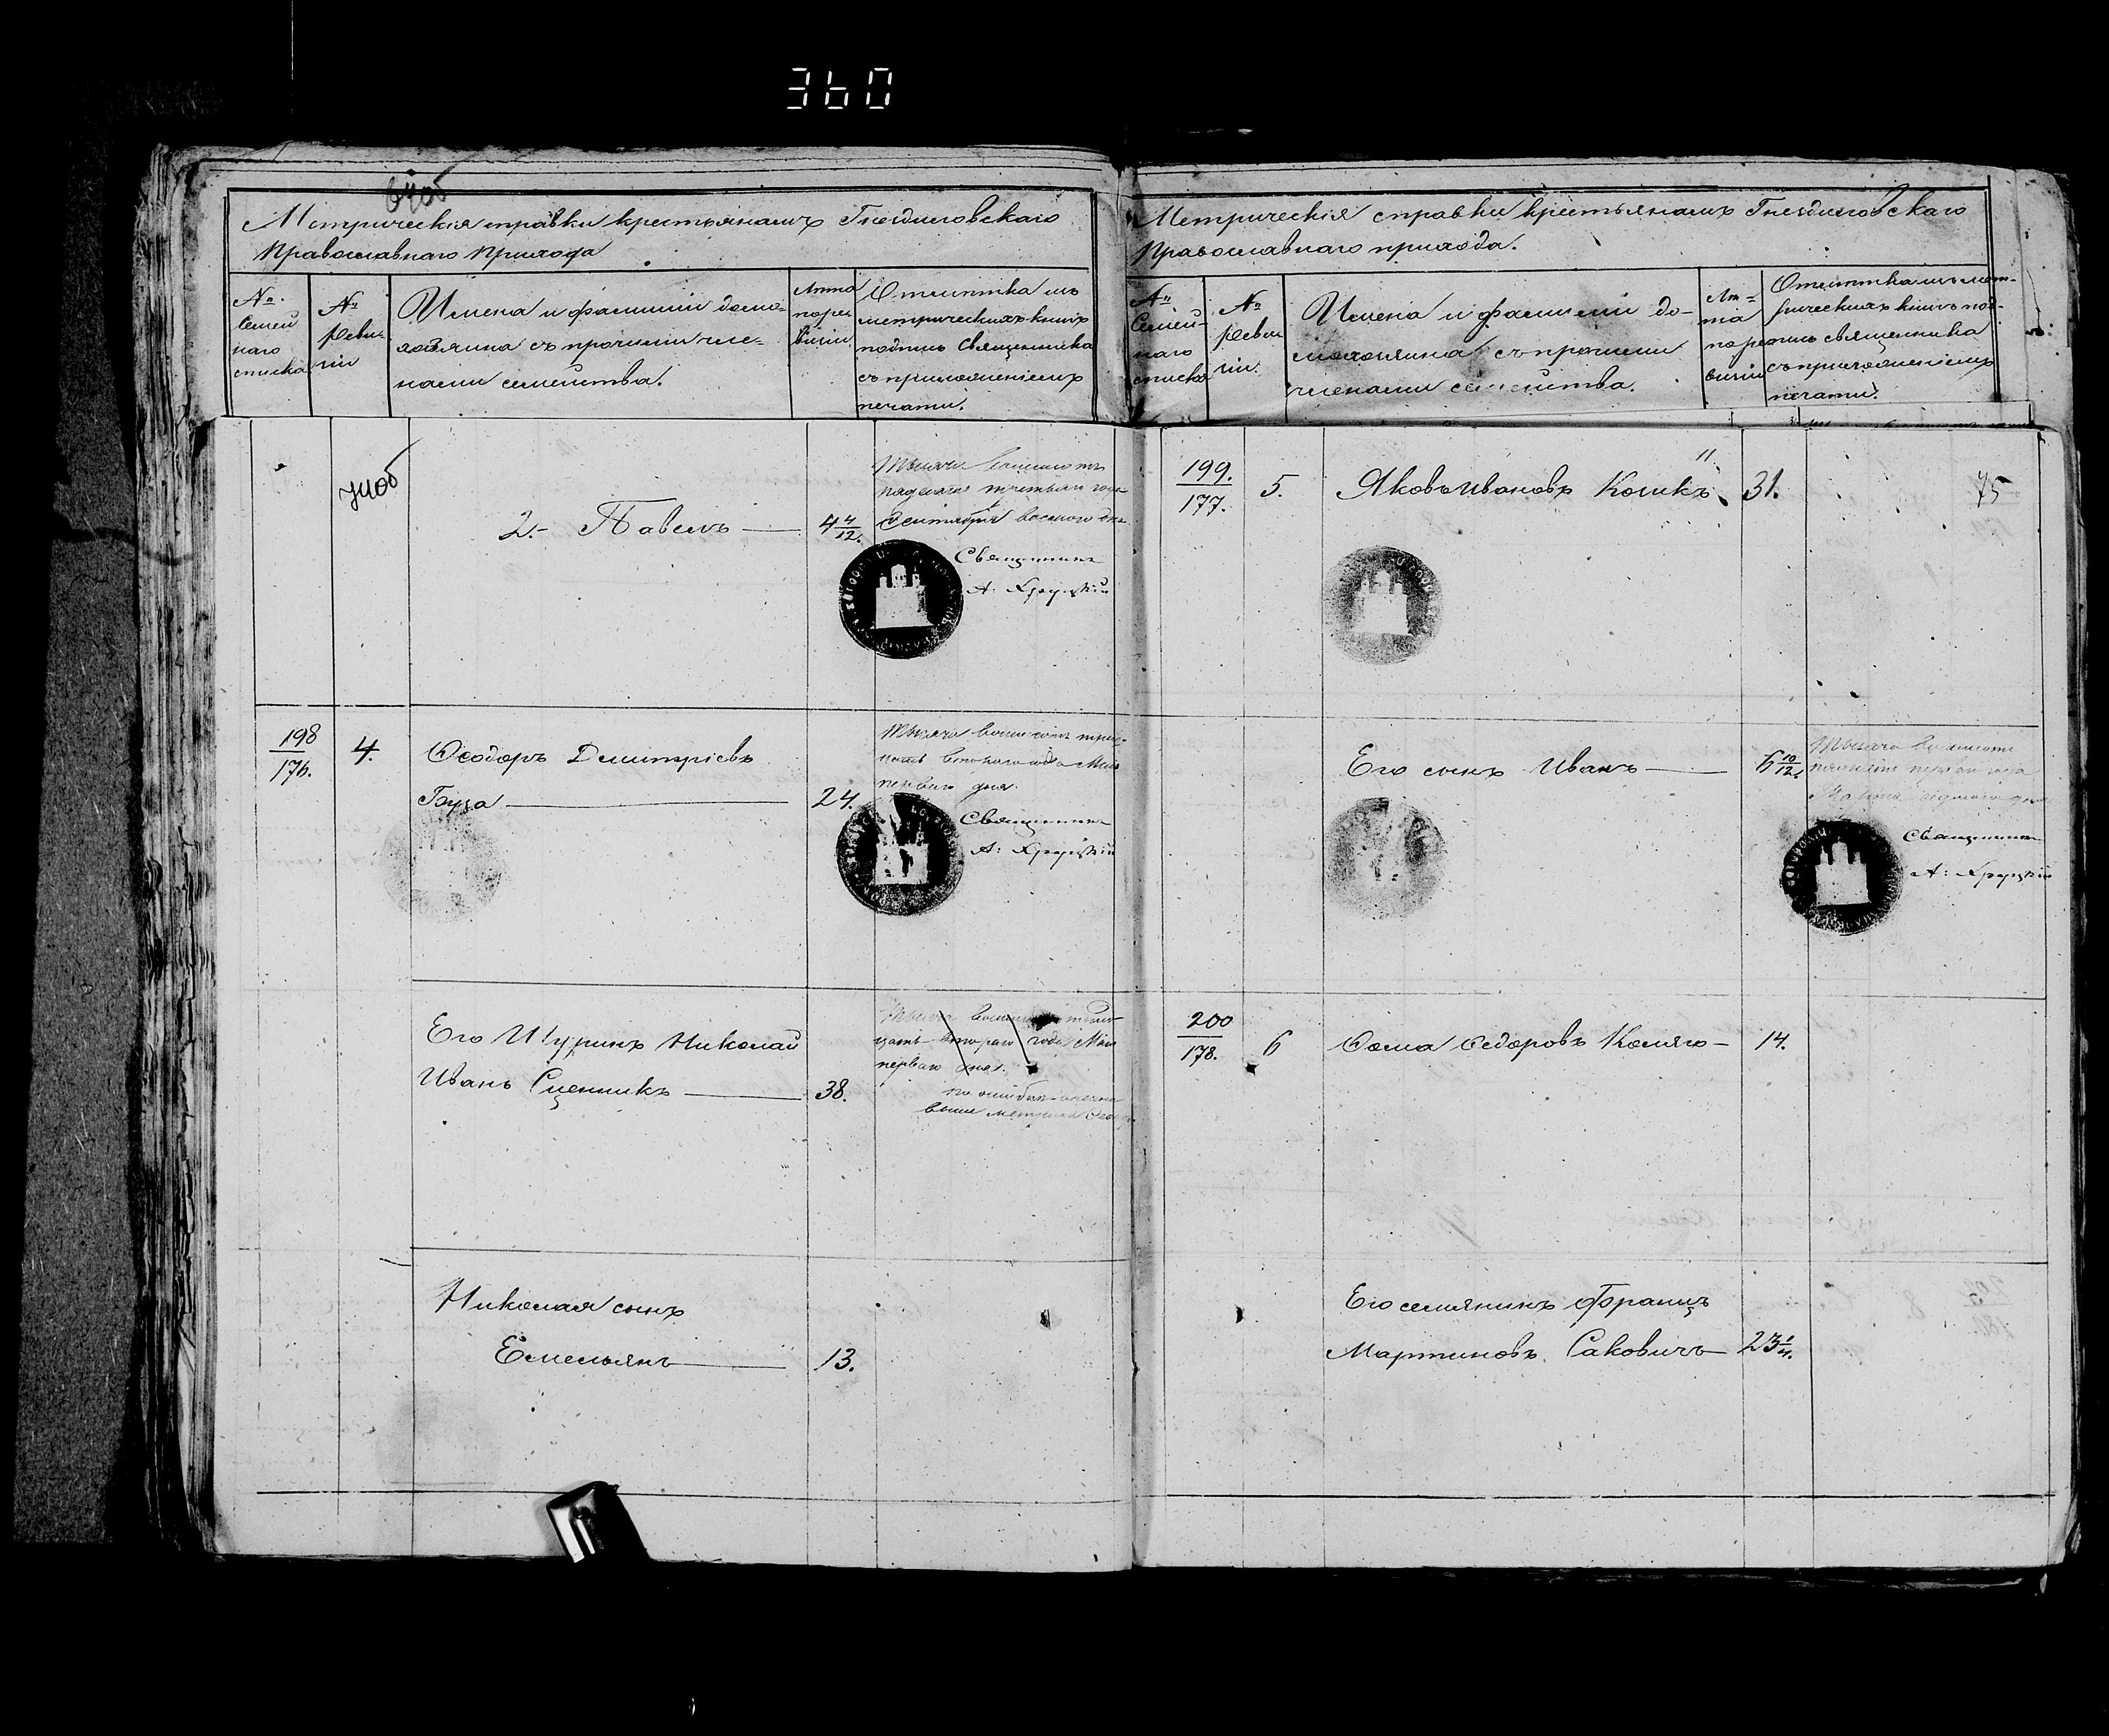 360
64об
Метрическія справки крестьянамъ Гнездиловскаго
Православнаго Прихода
№ Семейнаго списка
№ Ревизіи
Имена и фамиліи домохозяина съ прочими членами семейства.
Лета по ревизіи
Отметка изъ метрическихъ книгъ подпись Священника съ приложеніемъ печати.
74об
2. Павелъ 4 4/12.
Тысяча восемьсотъ
пядесятъ третьяго года
Сентября восмого дня
Священникъ
198/176. 4. Ѳеодоръ Дмитріевъ
24.
Тысяча восемьсотъ тридцать втораго года Мая
перваго дня.
Священникъ
Его Шуринъ Николай
Иванъ 38.
Тысяча восемьсотъ тридцать втораго года Мая
перваго дня.
по ошибке
выше
Николая сынъ
Емельянъ 13.
Метрическія справки крестьянамъ Гнездиловскаго
Православнаго прихода.
№ Семейнаго списка
№ ревизіи.
Имена и фамиліи домохозяина съ прочими членами семейства.
Лета по ревизіи
Отметка изъ метрическихъ книгъ подпись священника съ приложеніемъ печати.
199./177. 5. Яковъ Ивановъ 31. 75
Его сынъ Иванъ 6 10/12.
Тысяча восемьсотъ
пятьдесятъ перваго года
Священникъ
200/178. 6 Ѳома Ѳедоровъ 14.
Его семянинъ Францъ
Мартиновъ Саковичъ 23 1/4.